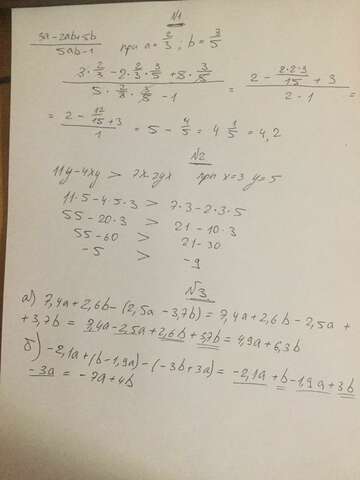 №1
3a-2ab+5b / 5ab-1 при a = 2/3 ; b = 3/5
3·2/3 - 2·2/3·3/5 + 5·3/5 / 5·2/3·3/5 - 1 = 2 - 2·2·3/15 + 3 / 2·1 =
= 2 - 12/15 + 3 / 1 = 5 - 4/5 = 4 1/5 = 4,2
№2
11y-4xy > 7x-2yx при x=3 y=5
11·5-4·5·3 > 7·3-2·3·5
55-20·3 > 21-10·3
55-60 > 21-30
-5 > -9
№3
а) 7,4a+2,6b-(2,5a-3,7b) = 7,4a+2,6b-2,5a+
+3,7b = 7,4a-2,5a+2,6b+3,7b = 4,9a+6,3b
б) -2,1a+(b-1,9a)-(-3b+3a) = -2,1a+b-1,9a+3b
-3a = -7a+4b